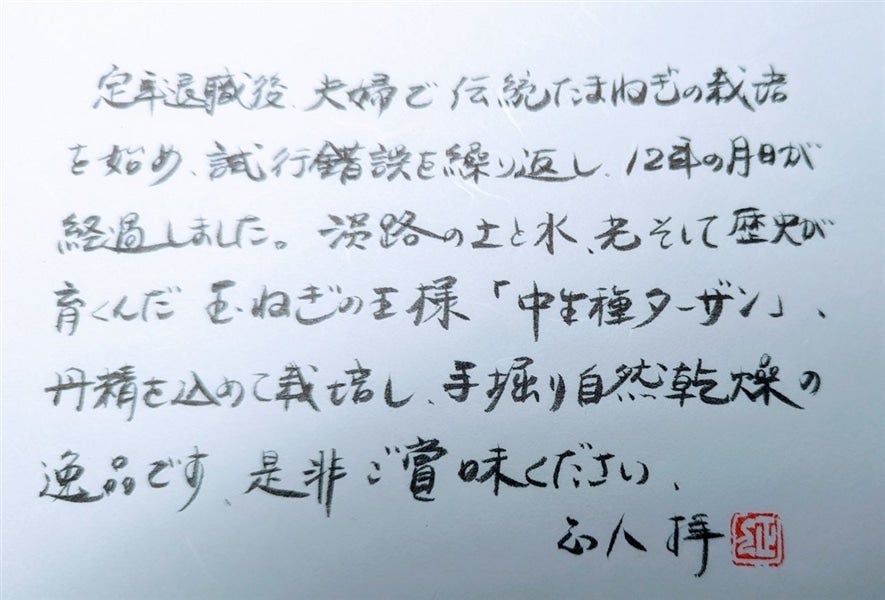 定年退職後、夫婦で伝統たまねぎの栽培
を始め、試行錯誤を繰り返し、12年の月日が
経過しました。淡路の土と水、光そして歴史が
育くんだ玉ねぎの王様「中生種ターザン」、
丹精を込めて栽培し、手掘り自然乾燥の
逸品です、是非ご賞味ください、
正人 拝